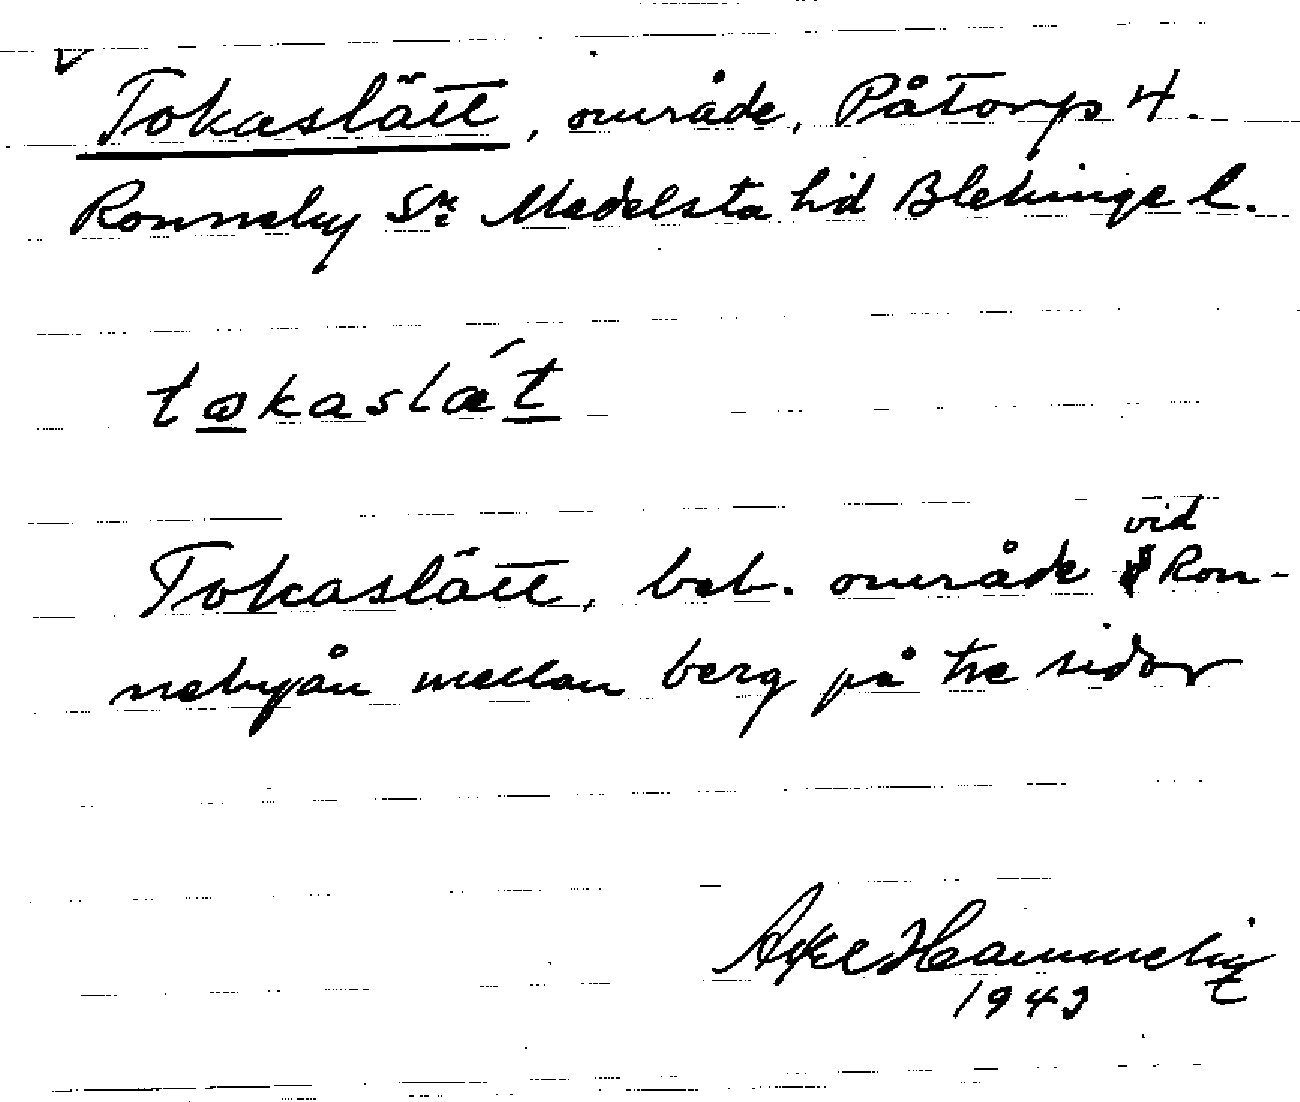 Tokaslätt, område, Påtorp 4.
Ronneby Sn Medelsta hd Blekinge l.
tøkaslǽt
Tokaslätt, beb. område vid Ron-
nebyån mellan berg på tre sidor
1943